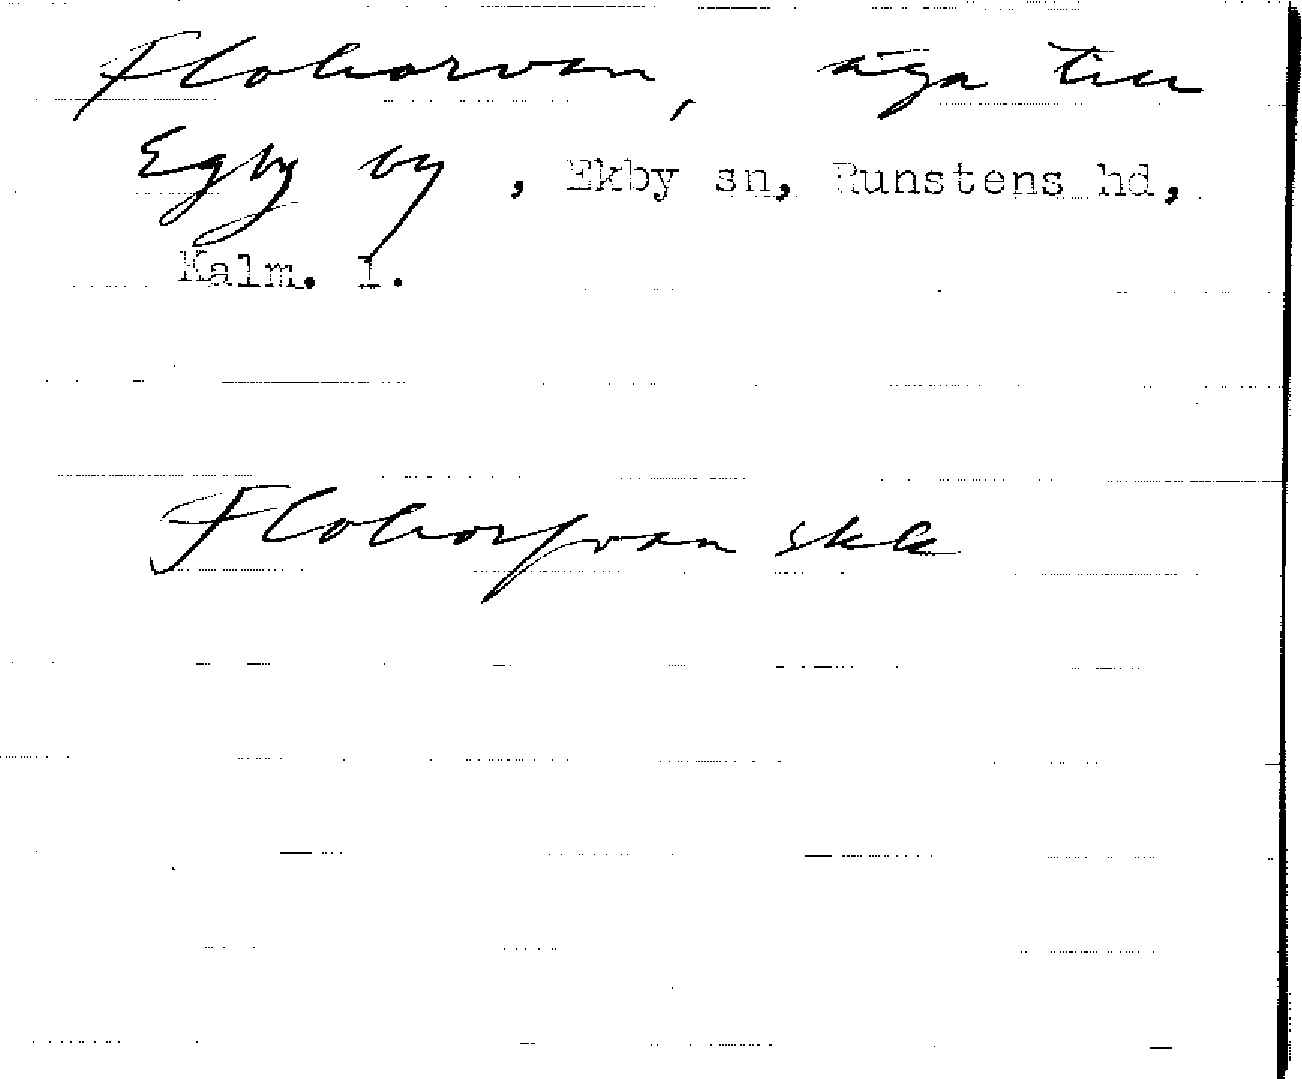 Flohorvan, äga till
Egby by, Ekby sn, Runstens hd,
Kalm. l.
Flohorfvan skk